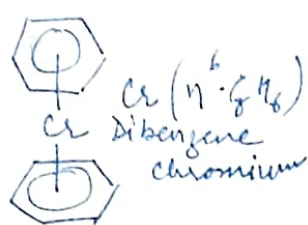 Cr (η⁶·C₆H₆)
Cr Dibenzene
chromium